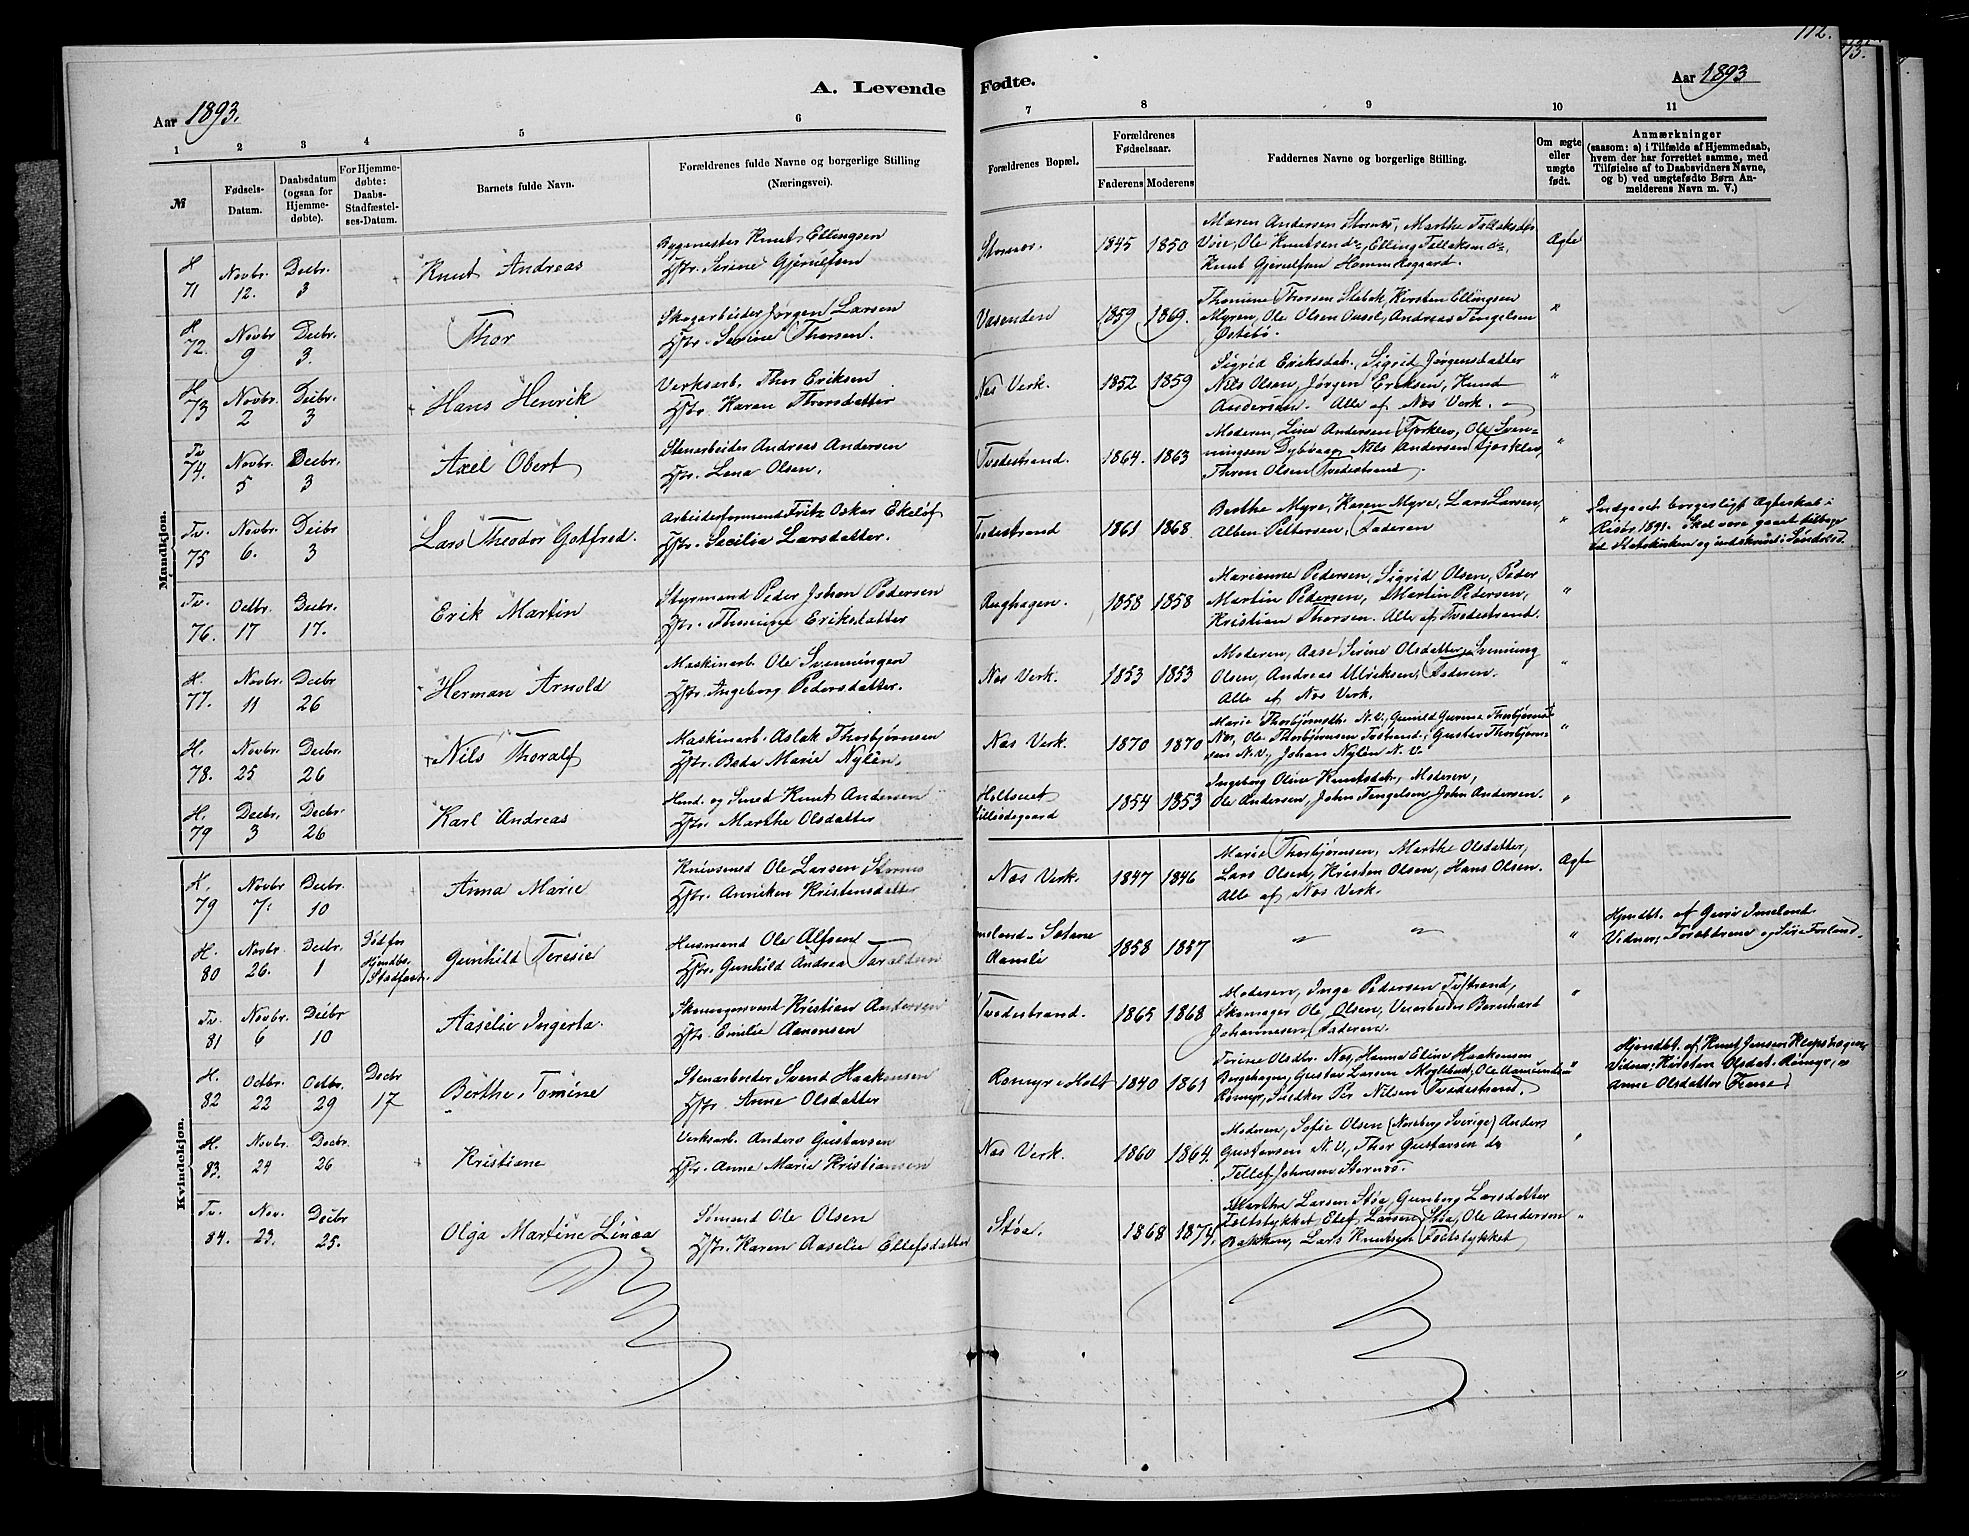 112.
A. Levende Fødte.
Aar 1893.
Aar 1893
1 2 3 4 5 6 7 8 9 10 11
№
Fødsels-Datum.
Daabsdatum (ogsaa for Hjemme-døbte).
For Hjemme-døbte: Daabs-Stadfæstel-ses-Datum.
Barnets fulde Navn.
Forældrenes fulde Navne og borgerlige Stilling (Næringsvei).
Forældrenes Bopæl.
Forældrenes Fødselsaar.
Faderens Moderens
Faddernes Navne og borgerlige Stilling.
Om ægte eller uægte født.
Anmærkninger
(saasom: a) i Tilfælde af Hjemmedaab, hvem der har forrettet samme, med Tilføielse af to Daabsvidners Navne, og b) ved uægtefødte Børn Anmelderens Navn m. V.)
Mandkjøn.
H. 71 Novbr. 12. Decbr. 3 Knut Andreas
Bygmester Knut Ellingsen
Hstr. Serine Gjerulfsen
Stornæs. 1845 1850
Maren Andersen Stornæs, Marthe Tellaksdtr
Voie, Ole Knutsen do, Elling Tellaksen do,
Knut Gjerulfsen Hommesgaard.
Ægte
H. 72. Novbr 9 Decbr. 3. Thor
Skogarbeider Jørgen Larsen
Hstr. Serine Thorsen.
Vasenden 1859 1869.
Thomine Thorsen Stebek, Kirsten Ellingsen
Myren, Ole Olsen Oasel, Andreas Tengelsen
Østebø.
"
H. 73 Novbr. 2 Decbr. 3 Hans Henrik
Verksarb. Thor Eriksen
Hstr. Karen Thorsdatter
Nes Verk. 1852 1859
Sigrid Eriksdat. Sigrid Jørgensdatter
Nils Olsen, Jørgen Eriksen, Knud
Andersen. Alle af Nes Verk.
"
Tv 74. Novbr. 5 Decbr. 3 Axel Obert
Stenarbeider Andreas Andersen
Hstr. Lena Olsen.
Tvedestrand. 1864. 1863
Moderen, Line Andersen Fjorklev, Ole Sven-
ningsen Dybvaag, Nils Andersen Fjorklev,
Thron Olsen Tvedestrand.
"
Tv. 75 Novbr. 6. Decbr 3 Lars Theodor Gotfred.
Arbeidsformand Fritz Oskar Ekelöf
Hstr. Sacilia Larsdatter.
Tvedestrand 1861 1868
Berthe Myre, Karen Myre, Lars Larsen,
Alben Pettersen, Faderen
"
Indgaaet borgerligt Ægteskab i
Risør 1891. Skal være gaaet tilbage
til Statskirken og indskrevet i Søndeled
Tv. 76. Octbr. 17 Decbr. 17. Erik Martin
Styrmand Peder Johan Pedersen
Hstr. Thomine Eriksdatter
Rughagen. 1858 1858
Marianne Pedersen, Sigrid Olsen, Peder
Martin Pedersen, Martin Pedersen,
Kristian Thorsen. Alle af Tvedestrand.
"
H. 77. Novbr. 11 Decbr 26 Herman Arnold
Maskinarb. Ole Svenningen
Hstr. Ingeborg Pedersdatter.
Nes Verk. 1853 1853
Moderen, Aase Serine Olsdatter, Svenning
Olsen, Andreas Ulriksen, Faderen.
Alle af Nes Verk.
"
H. 78. Novbr. 25 Decbr. 26 Nils Thoralf
Maskinarb. Aslak Thorbjørnsen
Hstr. Beda Marie Nylén,
Nes Verk. 1870 1870
Marie Thorbjørnsdt. N.V., Gunild Gurine Thorbjørns
Nes, Ole Thorbjørnsen Tvstrand, Gustav Thorbjørn-
sen N.V., Johan Nylén N.V.
"
H. 79 Decbr. 3 Decbr. 26 Karl Andreas
Husmd. og Smed Knut Andersen
Hstr. Marthe Olsdatter
Holtseiet
1854 1853
Ingeborg Oline Knutsdat., Moderen,
Ole Andersen, John Tengelsen, John Andersen.
"
Kvindekjøn.
H. 79 Novbr 7. Decbr. 10 Anna Marie
Knivsmed Ole Larsen Stornes
Hstr. Anniken Kristensdatter
Nes Verk. 1847 1846
Marie Thorbjørnsen, Marthe Olsdatter,
Lars Olsen, Kristen Olsen, Hans Olsen.
Alle af Nes Verk.
Ægte
H. 80 Novbr. 26. Decbr. 1 Død før Hjmdbs. Stadfæst. Gunhild Teresie
Husmand Ole Alfsen
Hstr. Gunhild Andrea Taraldsen
1858 1857
" "
"
Hjmdbt. af
Tv. 81 Novbr. 6 Decbr 10 Aaselie Ingerta.
Skomagersvend Kristian Andersen
Hstr. Emilie Aanonsen
Tvedestrand. 1865 1868
Moderen, Inga Pedersen Tvstrand,
Skomager Ole Olsen, Urarbeider Bernhart
Johannesen, Faderen.
"
H. 82 Octbr. 22 Octbr. 29 Decbr 17 Berthe Tomine
Stenarbeider Svend Haakonsen
Hstr. Anne Olsdatter
Romyr i Holt 1840 1861
Torine Olsdtr. Nes, Hanna Eline Haakonsen
Berghagen, Gustav Larsen
Romyr, Snedker Per Nilsen Tvedestrand.
"
Hjmdbt. af Knut Jensen
Vidner: Kirsten Olsdat. Romyr, og
Anne Olsdatter
H. 83. Novbr. 24 Decbr. 26 Kristiane
Verksarb. Anders Gustavsen
Hstr. Anne Marie Kristiansen
Nes Verk. 1860 1864.
Moderen, Sofie Olsen (Noreberg Sverige) Anders
Gustavsen N.V., Thor Gustavsen do
Tellef Johnsen Stornæs.
"
Tv. 84. Nov. 23. Decbr 25. Olga Martine Linaa
Sømand Ole Olsen
Hstr. Karen Aaselie Ellefsdatter
Støa. 1868 1874.
Marthe Larsen Støa, Gunborg Larsdatter
Toltstykket, Elef Larsen Støa, Ole Andersen
Bakken, Lars Knutsen Toltstykket
"